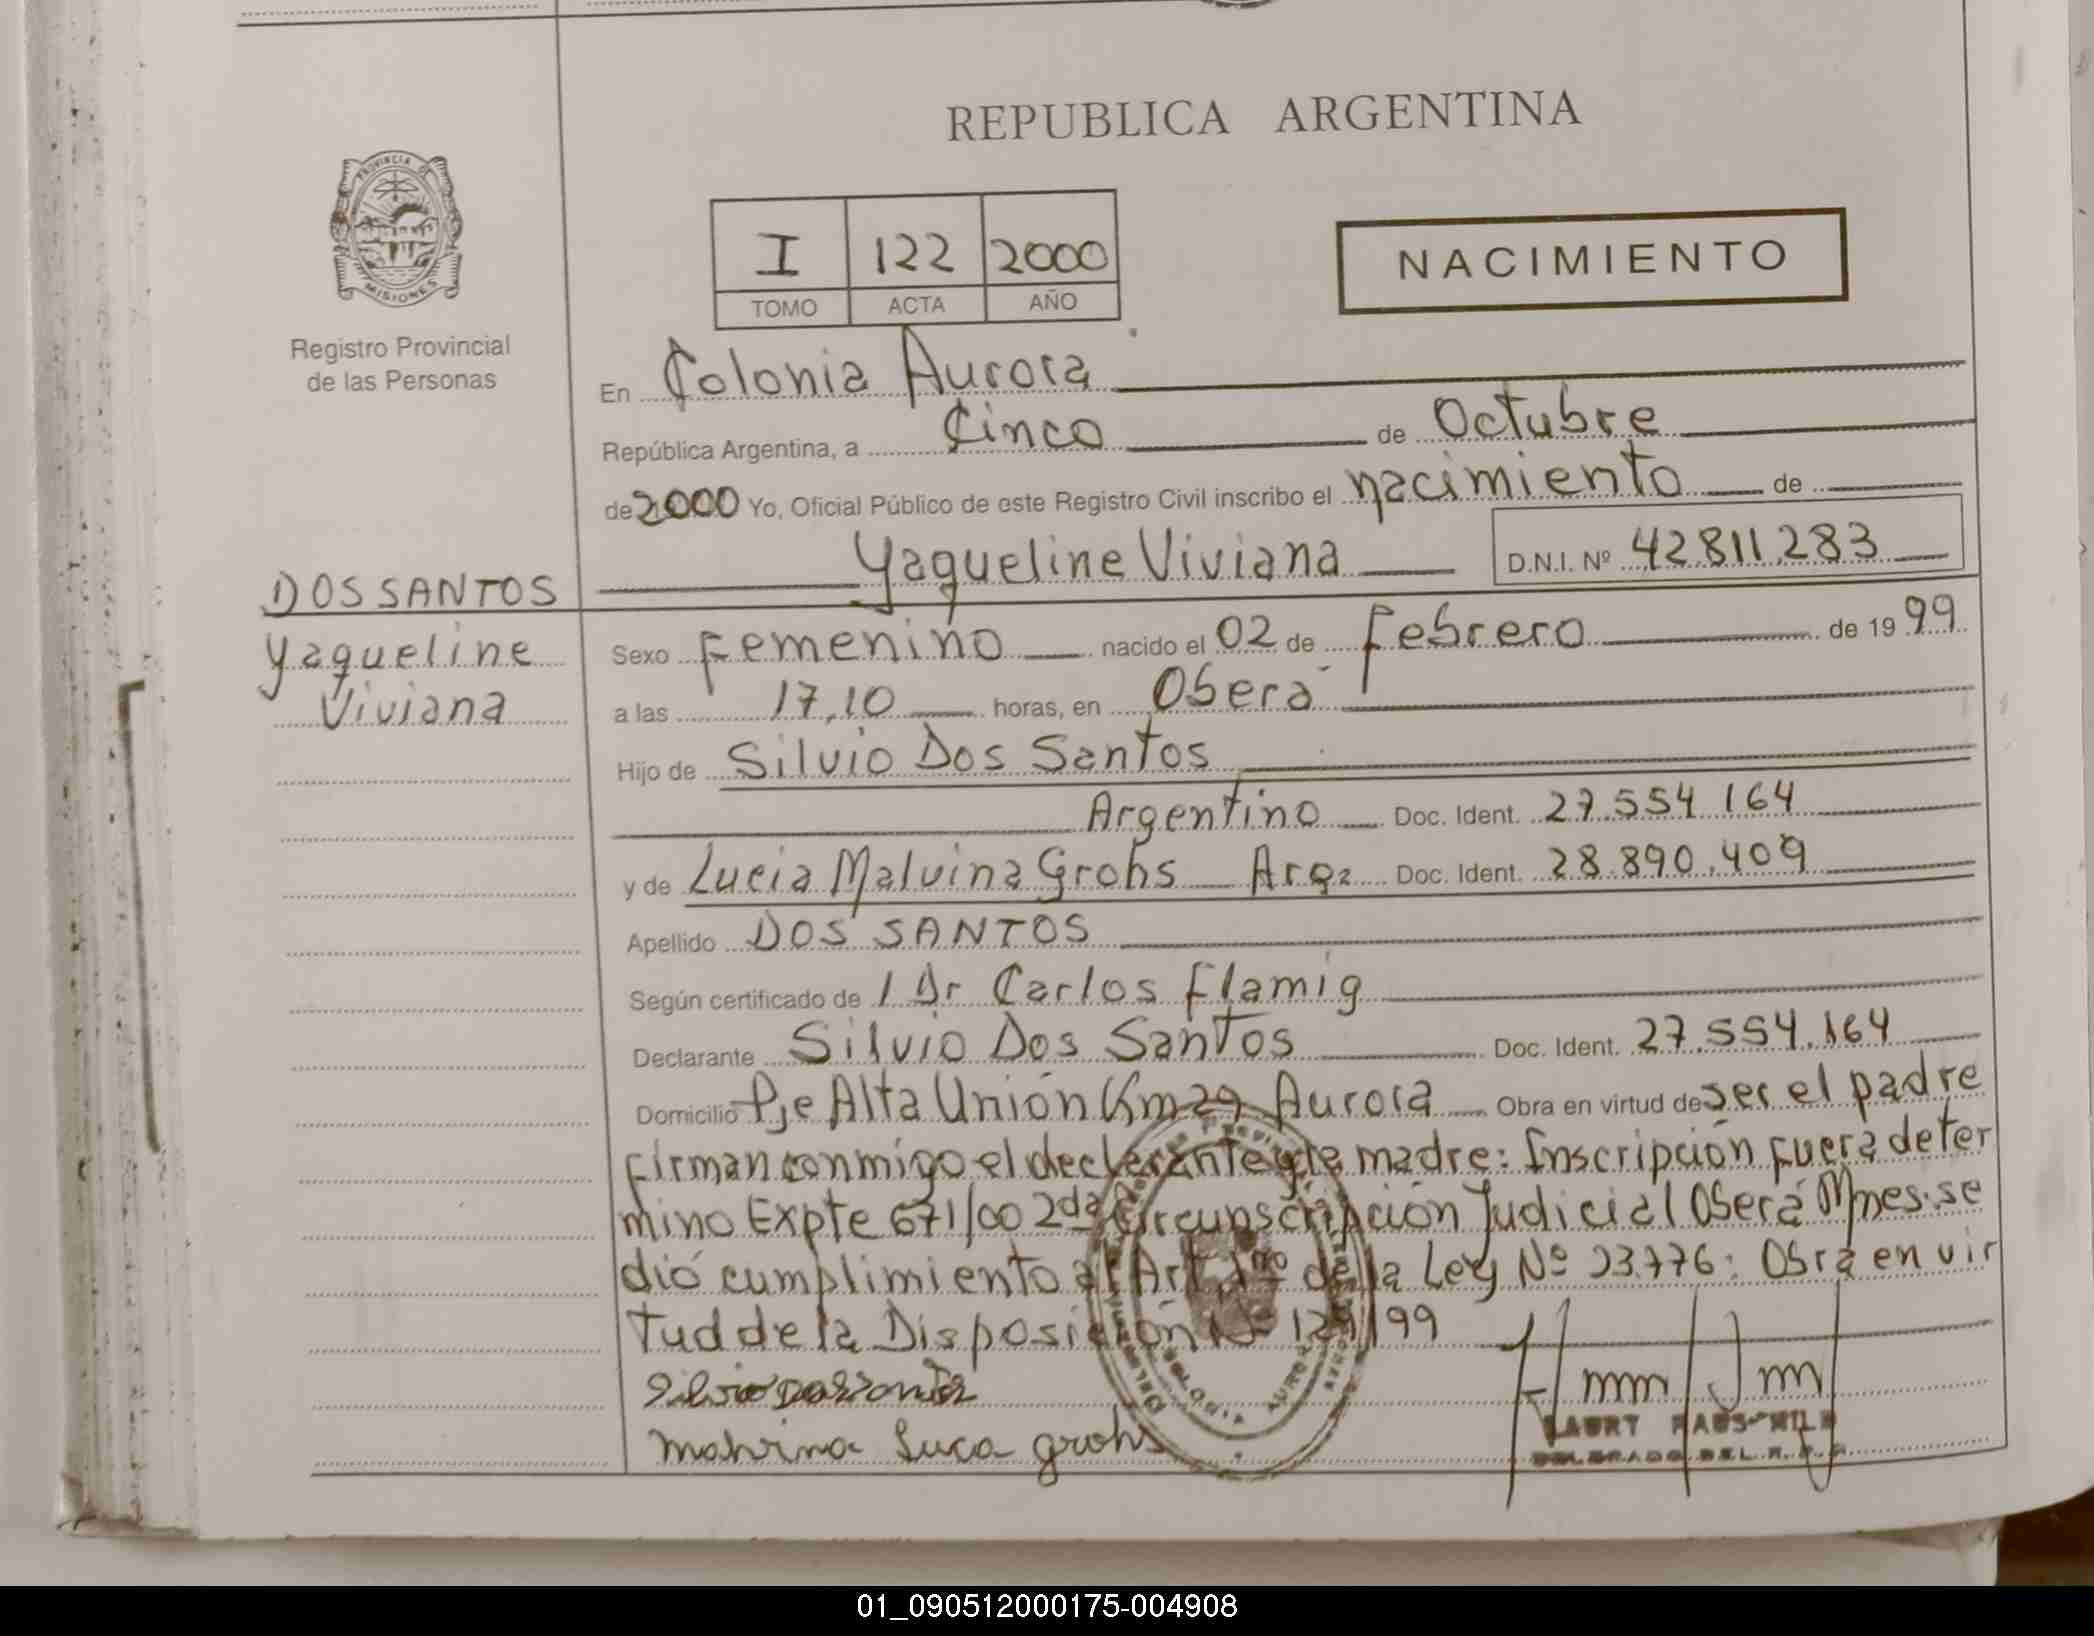 REPUBLICA ARGENTINA
PROVINCIA DE
MISIONES
Registro Provincial
de las Personas
I 122 2000
TOMO ACTA AÑO
NACIMIENTO
En Colonia Aurora
República Argentina, a Cinco de Octubre
de 2000 Yo, Oficial Público de este Registro Civil inscribo el nacimiento de
Yaqueline Viviana D.N.I. Nº 42811.283
DOS SANTOS
Yaqueline
Viviana
Sexo Femenino nacido el 02 de Febrero de 1999
a las 17,10 horas, en Oberá
Hijo de Silvio Dos Santos
Argentino Doc. Ident. 27.554.164
y de Lucia Malvina Grohs Arga Doc. Ident. 28.890.409
Apellido DOS SANTOS
Según certificado de / Dr Carlos Flamig
Declarante Silvio Dos Santos Doc. Ident. 27.554.164
Domicilio Pje Alta Unión Km 29 Aurora Obra en virtud de ser el padre
Firman conmigo el declarante y la madre: Inscripción fuera de ter
mino Expte 671/00 2da Circunscripción Judicial Oberá Mnes. se
dió cumplimiento al Art 1ro de la Ley Nº 23.776: Obra en vir
tud de la Disposición Nº 129/99
Silvio dos santos
malvina Luca grohs
DELEGADO DEL R. P. P.
01_090512000175-004908